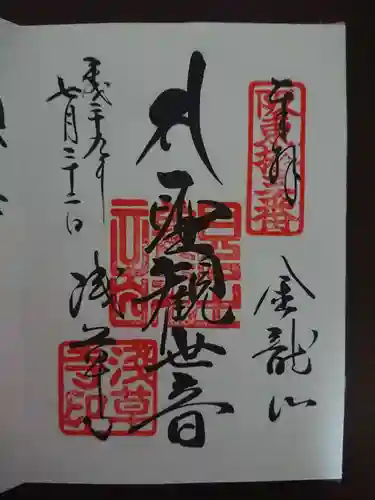 坂東拾三番
奉拝
金龍山
聖観世音
浅草寺
浅草寺印
平成二十九年
七月二十二日